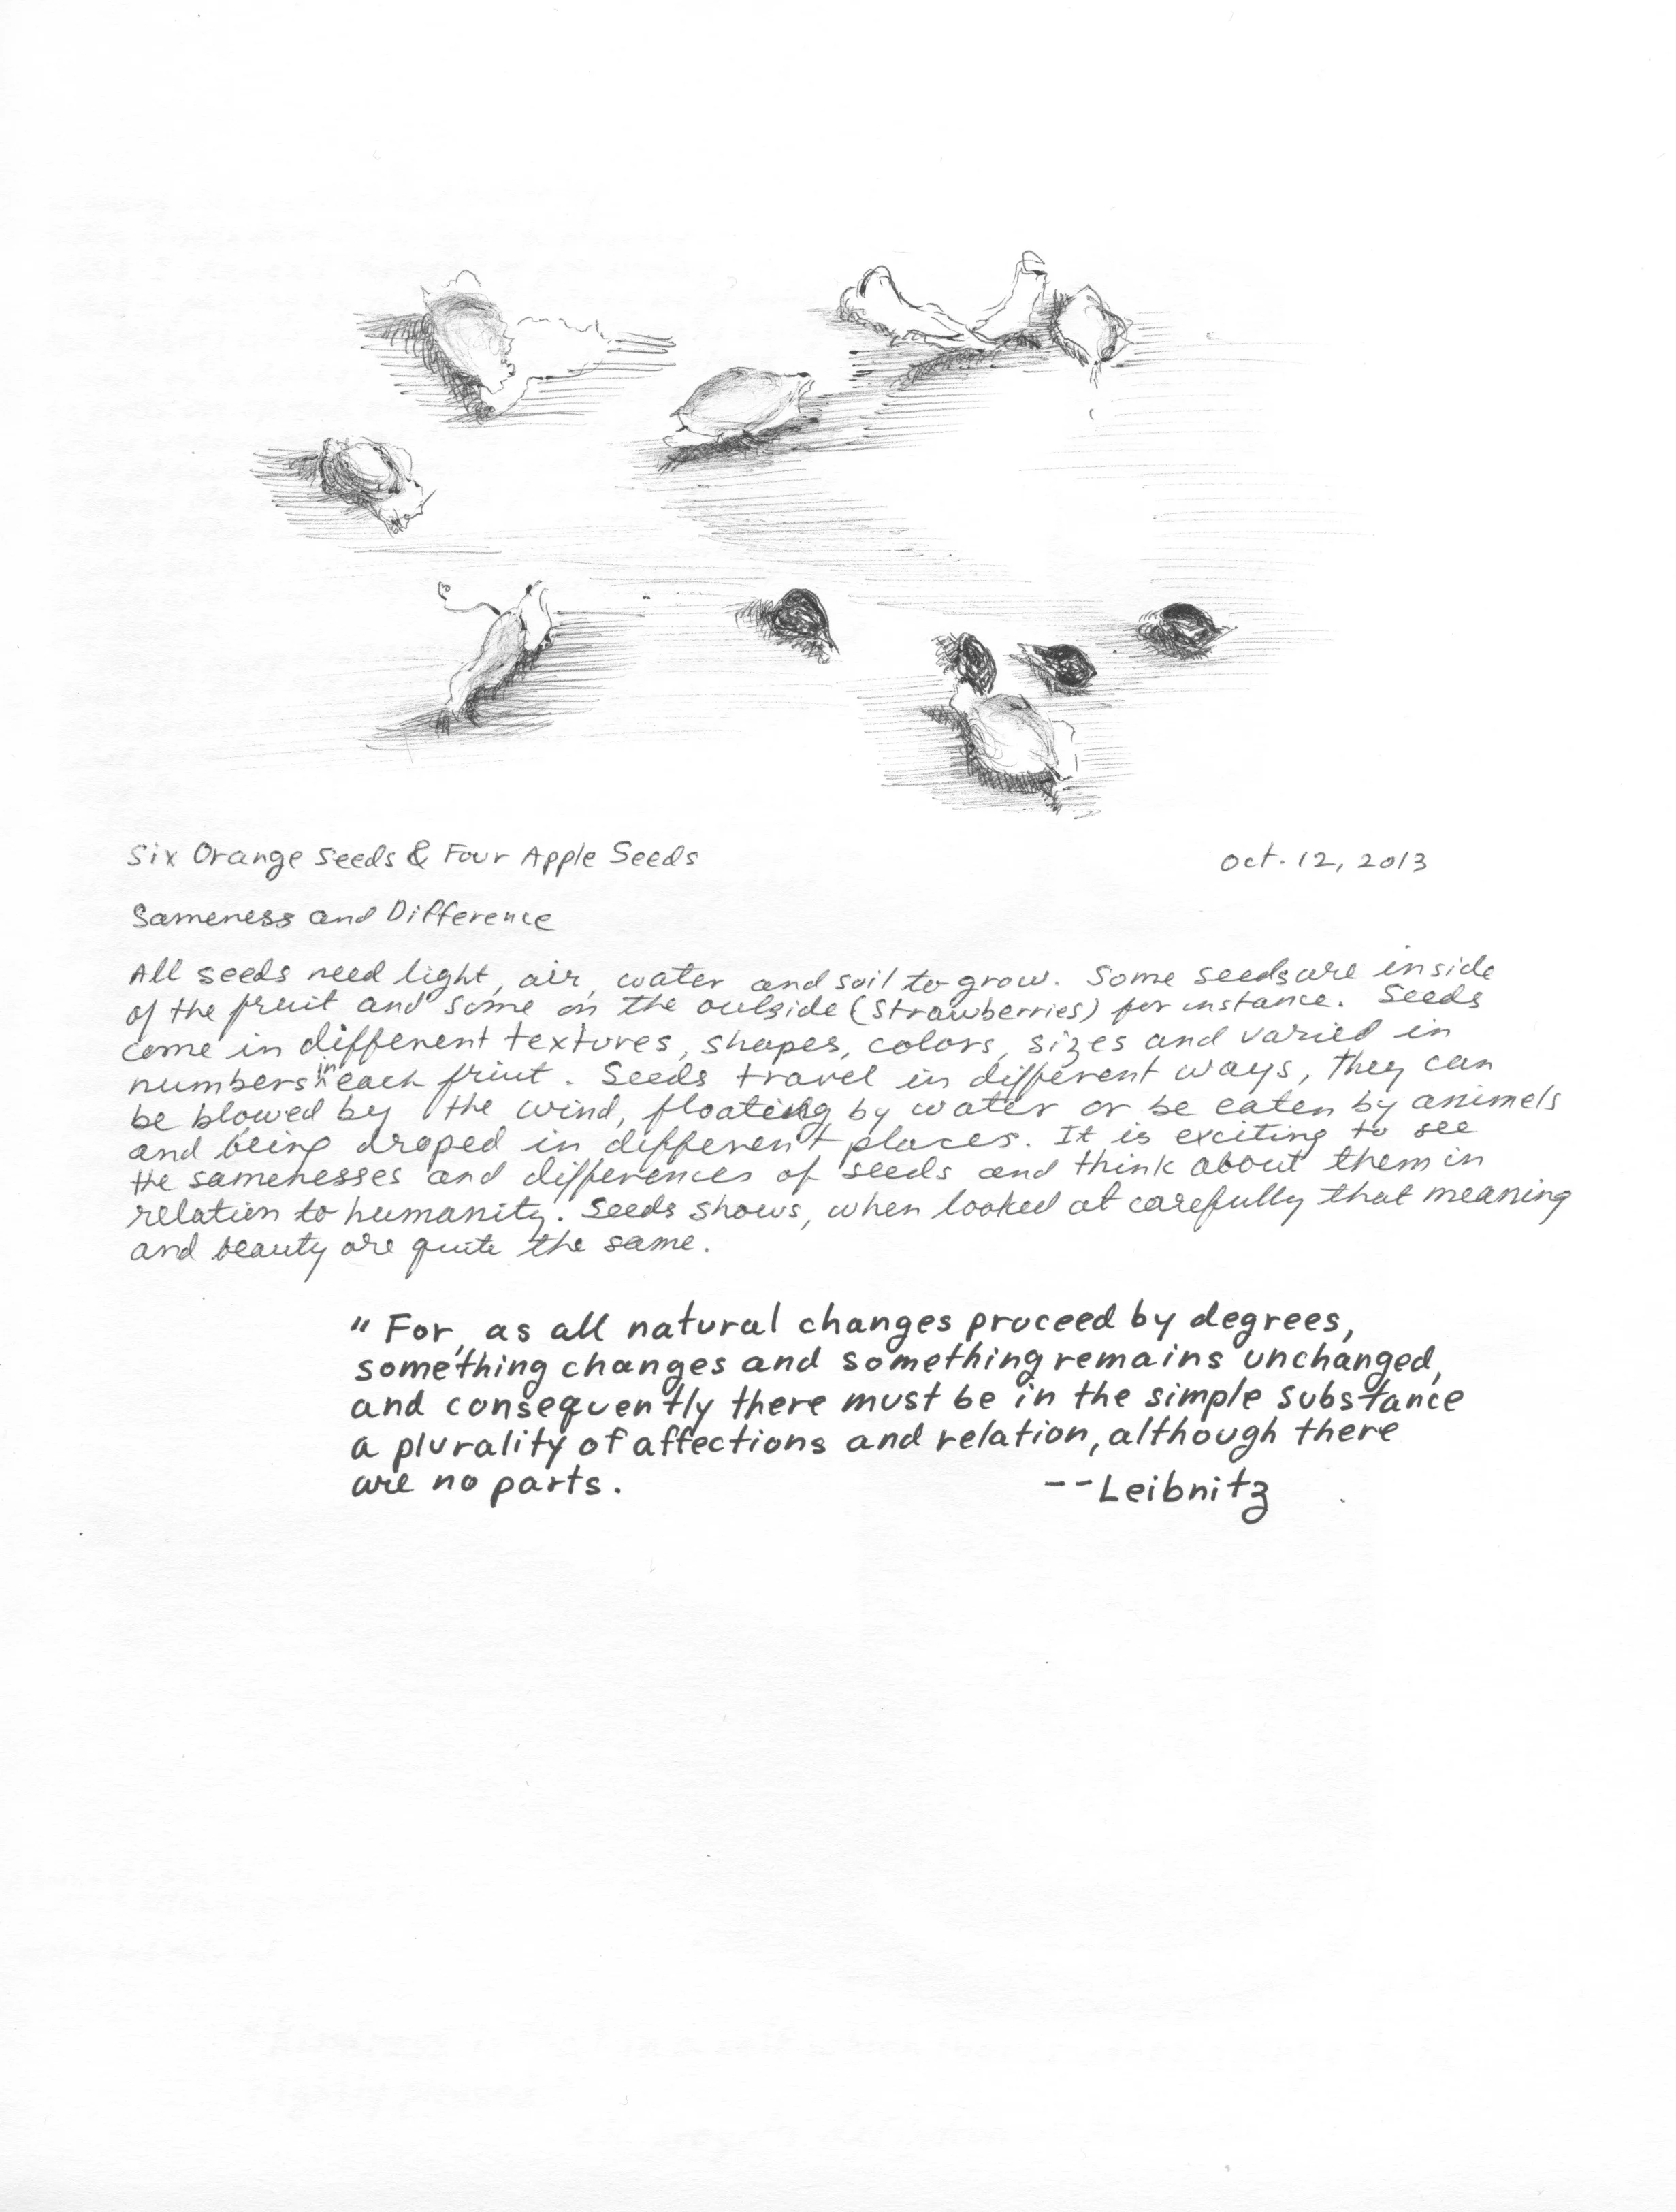 Six Orange Seeds & Four Apple Seeds Oct. 12, 2013
Sameness and Difference
All seeds need light, air, water and soil to grow. Some seeds are inside
of the fruit and some on the outside (strawberries) for instance. Seeds
come in different textures, shapes, colors, sizes and varied in
numbers in each fruit. Seeds travel in different ways, they can
be blowed by the wind, floating by water or be eaten by animels
and being droped in different places. It is exciting to see
the samenesses and differences of seeds and think about them in
relation to humanity. Seeds shows, when looked at carefully that meaning
and beauty are quite the same.
"For, as all natural changes proceed by degrees,
something changes and something remains unchanged,
and consequently there must be in the simple substance
a plurality of affections and relation, although there
are no parts. --Leibnitz